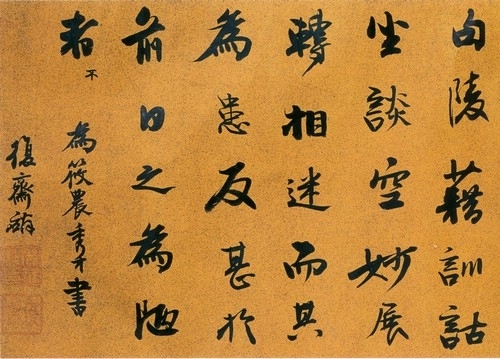 由陵藉訓詁
坐談空妙展
轉相迷而其
為患反甚於
前日之為陋
者不
為筱農秀才書
復齋